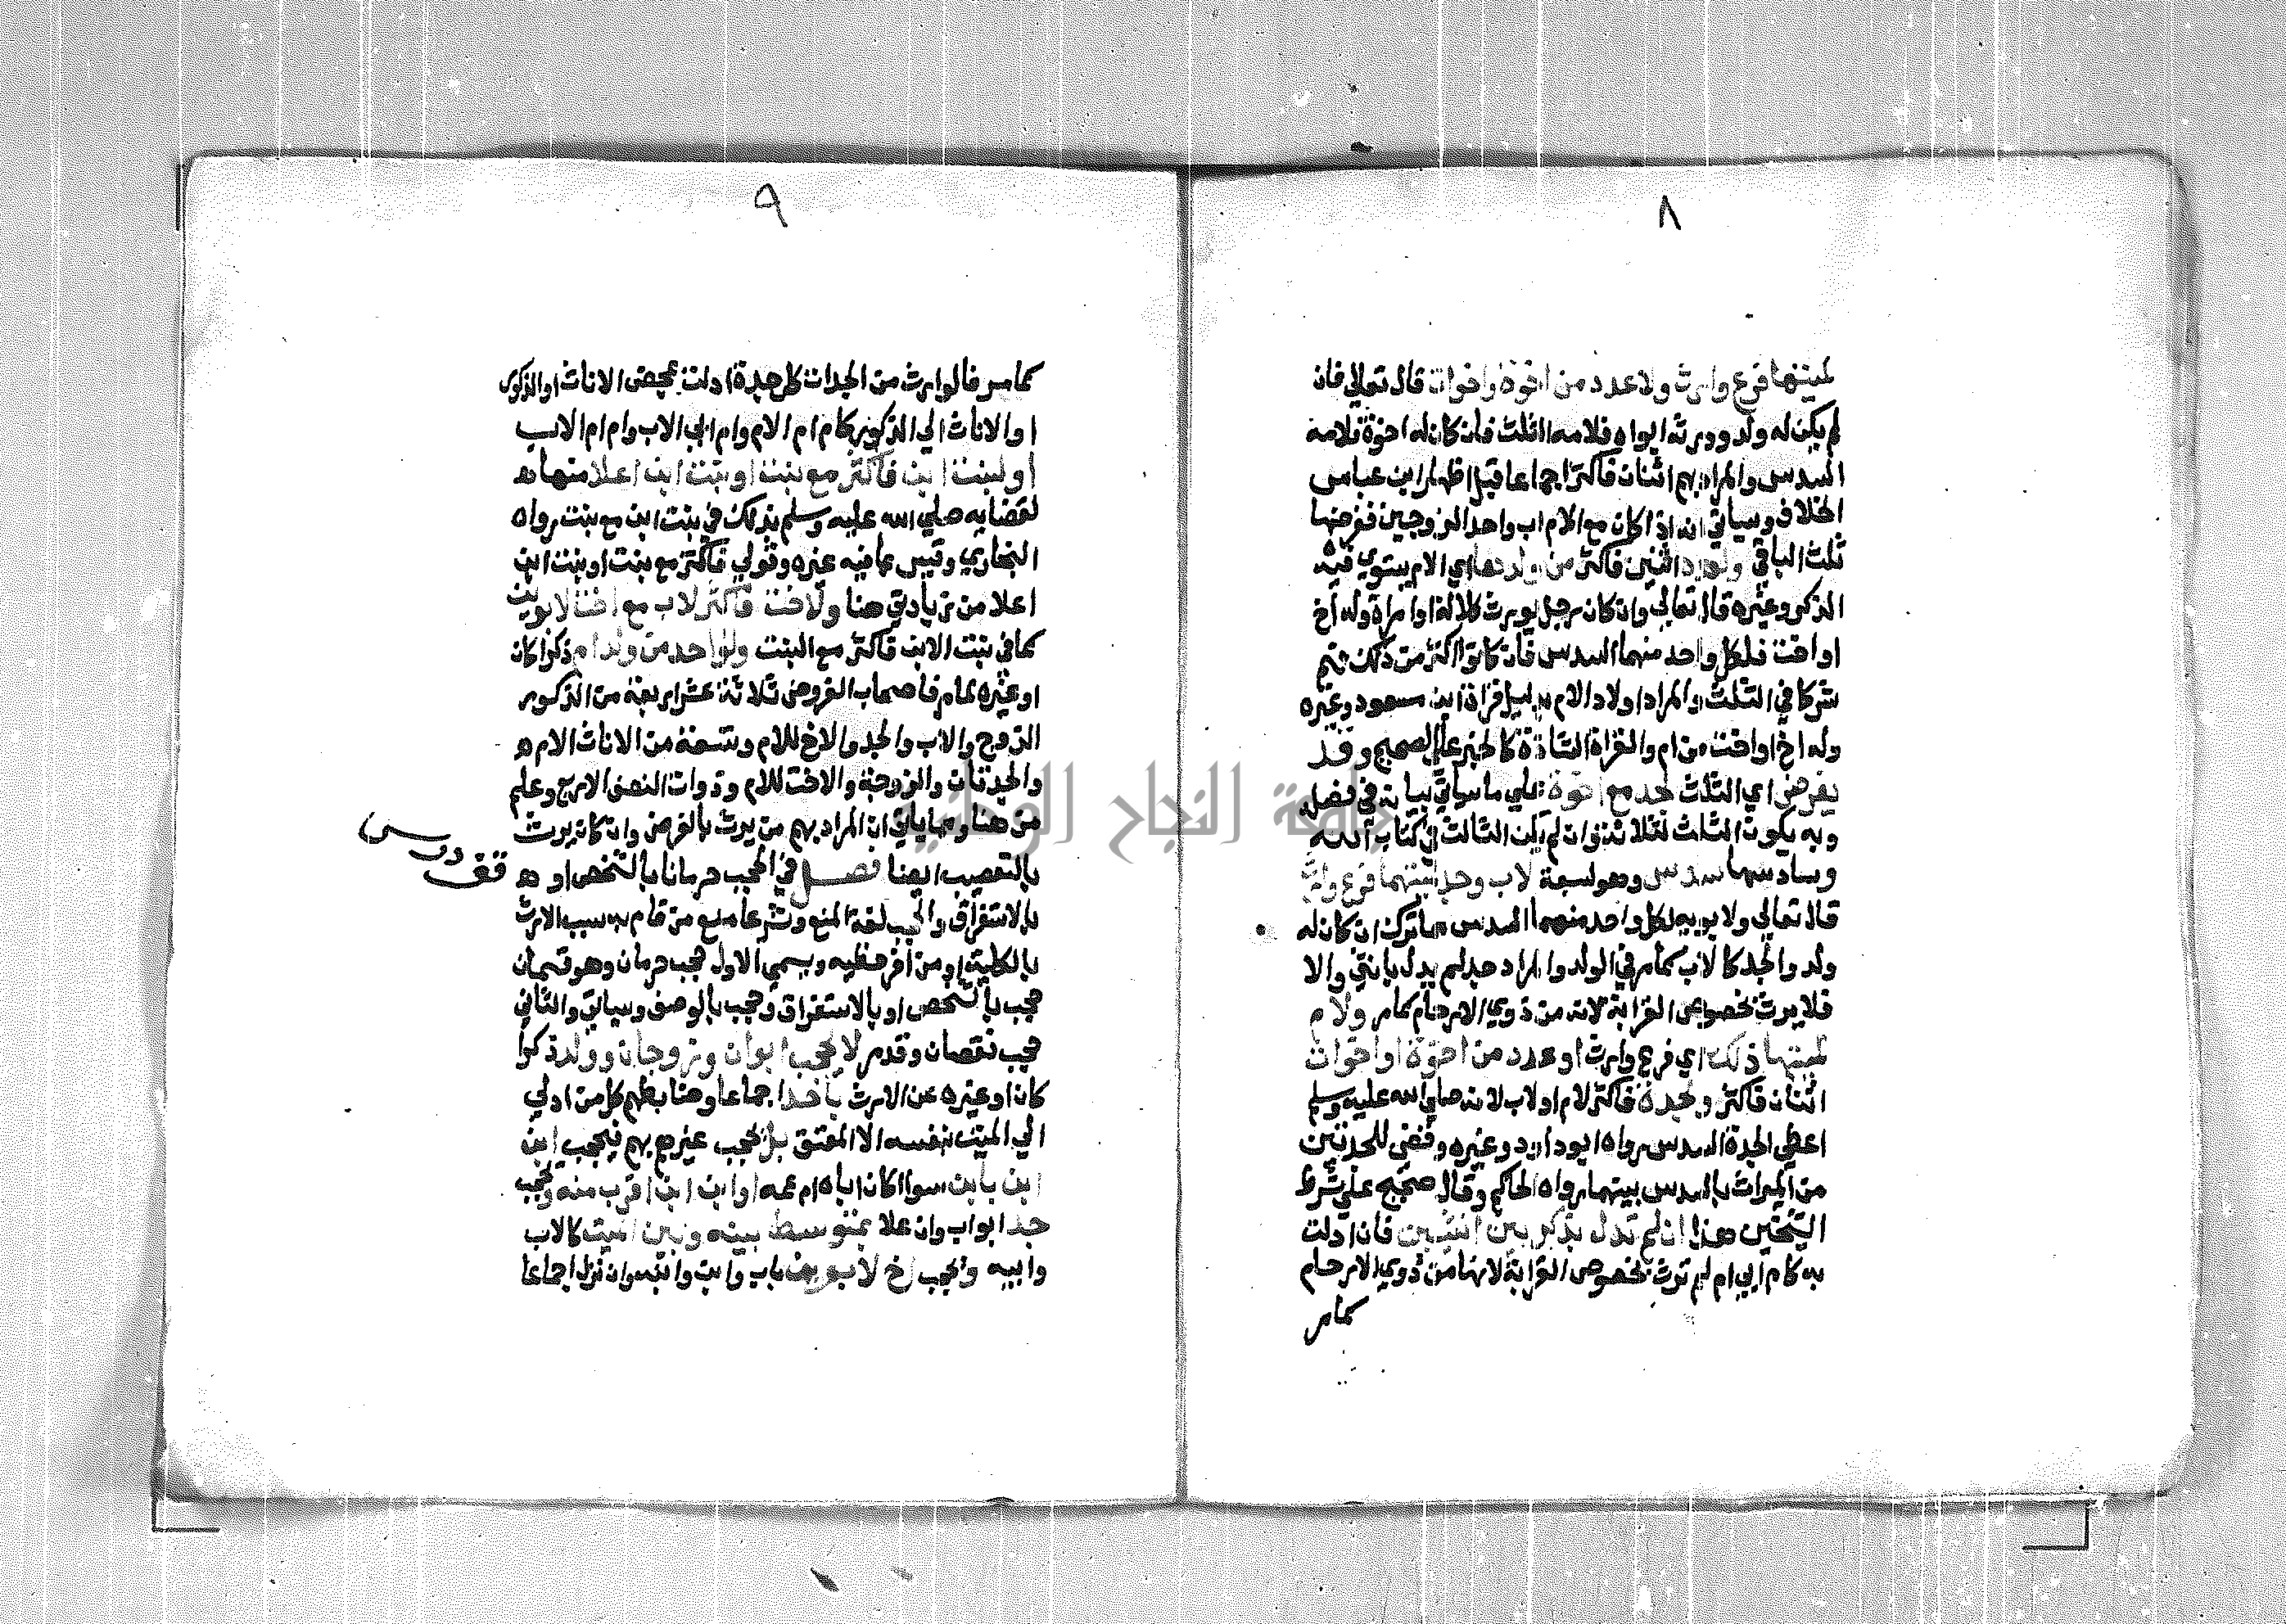 ٨
لميتها فرع وارث ولا عدد من اخوة واخوات قال تعالي فان
لم يكن له ولد وورثه ابواه فلامه الثلث فان كان له اخوة فلامه
السدس والمراد بهم اثنان فاكثر اجماعا قبل اظهار ابن عباس
الخلاف وسياتي انه اذا كان مع الام اب واحد الزوجين ففرضها
ثلث الباقي ولعدد اثنين فاكثر من ولدها اي الام يستوي فيه
الذكر وغيره قال تعالي وان كان رجل يورث كلالة او امراة وله اخ
او اخت فلكل واحد منهما السدس فان كانوا اكثر من ذلك فهم
شركا في الثلث والمراد اولاد الام بدليل قراة ابن مسعود وغيره
وله اخ او اخت من ام والقراة الشاذة كالخبر علي الصحيح وقد
يفرض اي الثلث لجد مع اخوة علي ما سياتي بيانه في فصله
وبه يكون الثلث لثلاثة وان لم يكن الثالث في كتاب الله
وسادسها سدس وهو لسبعة لاب وجد لميتهما فرع وارث
قال تعالي ولابويه لكل واحد منهما السدس مما ترك ان كان له
ولد والجد كالاب كما مر في الولد والمراد جد لم يدل بانثي والا
فلا يرث بخصوص القرابة لانه من ذوي الارحام كما مر ولام
لميتها ذلك اي فرع وارث او عدد من اخوة او اخوات
اثنان فاكثر ولجدة فاكثر لام او لاب لانه صلي الله عليه وسلم
اعطي الجدة السدس رواه ابو داود وغيره وقضي للجدتين
من الميراث بالسدس بينهما رواه الحاكم وقال صحيح علي شرط
الشيخين هذا ان لم تدل بذكر بين انثيين فان ادلت
به كام ابي ام لم ترث بخصوص القرابة لانها من ذوي الارحام
كما مر
٩
كما مر فالوارث من الجدات كل جدة ادلت بمحض الاناث او الذكور
او الاناث الي الذكور كام ام الام وام ابي الاب وام ام الاب
او لبنت ابن فاكثر مع بنت او بنت ابن اعلا منها
لقضايه صلي الله عليه وسلم بذلك في بنت ابن مع بنت رواه
البخاري وقيس بما فيه غيره وقولي فاكثر مع بنت او بنت ابن
اعلا من زيادتي هنا ولاخت فاكثر لاب مع اخت لابوين
كما في بنت الابن فاكثر مع البنت ولواحد من ولد ام ذكرا كان
او غيره لما مر فاصحاب الفروض ثلاثة عشر اربعة من الذكور
الزوج والاب والجد والاخ للام وتسعة من الاناث الام
والجدتان والزوجة والاخت للام وذوات النصف الاربع وعلم
من هنا ومما ياتي ان المراد بهم من يرث بالفرض وان كان يرث
بالتعصيب ايضا فصل في الحجب حرمانا بالشخص او
بالاستغراق والحجب لغة المنع وشرعا منع من قام به سبب الارث
بالكلية او من اوفر حظيه ويسمي الاول حجب حرمان وهو قسمان
حجب بالشخص او بالاستغراق وحجب بالوصف وسياتي والثاني
حجب نقصان وقد مر لا يحجب ابوان وزوجان وولد ذكرا
كان او غيره عن الارث باحد اجماعا وضابطهم كل من ادلي
الي الميت بنفسه الا المعتق بل يحجب غيرهم بهم فيحجب ابن
ابن بابن سوا كان اباه ام عمه او ابن ابن اقرب منه ويحجب
جد ابو اب وان علا بمتوسط بينه وبين الميت كالاب
وابيه ويحجب اخ لابوين باب وابن وابنه وان نزل اجماعا
قف درس